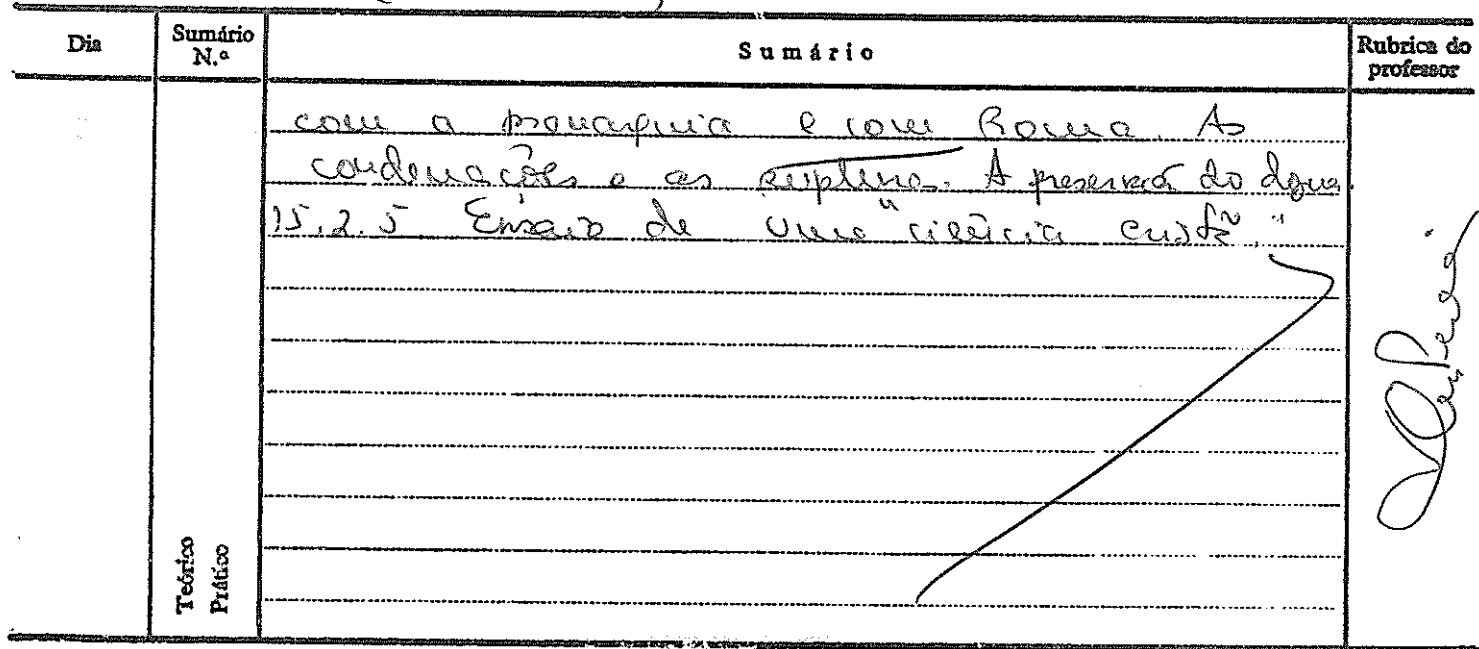 Dia
Sumário N.º
Sumário
Rubrica do professor
com a monarquia e com Roma. As
condenações e as rupturas. A preservação do dogma.
15.2.5. Ensaio de uma "ciência cristã."
Teórico
Prático